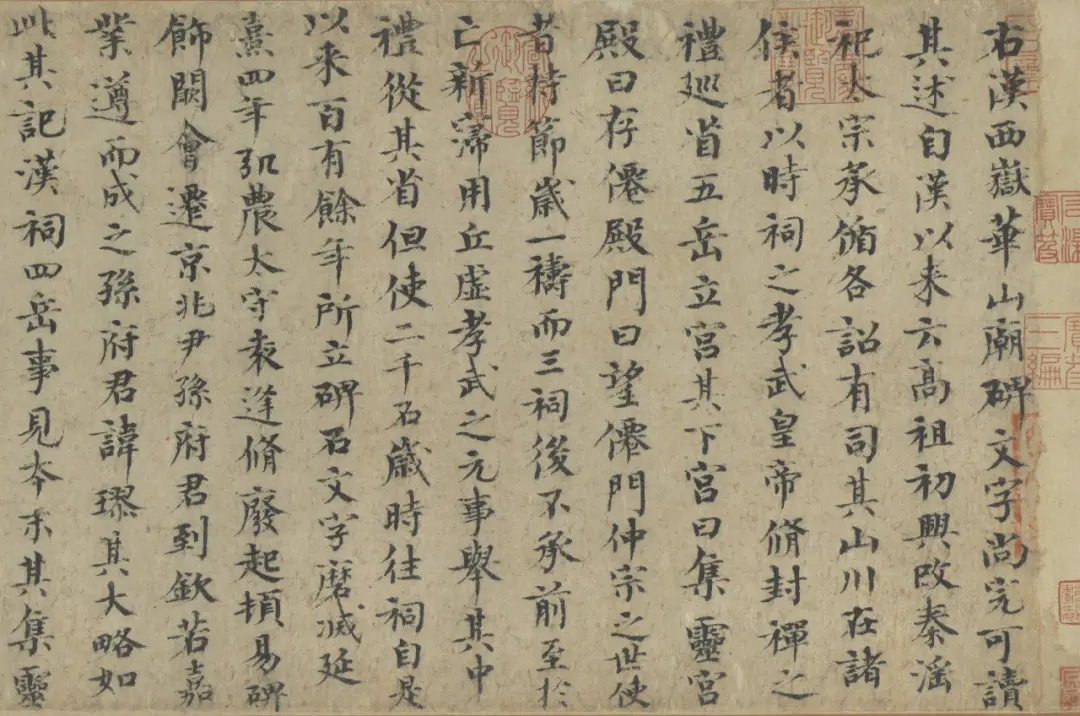 右漢西嶽華山廟碑文字尚完可讀
其述自漢以来云高祖初興改秦淫
祀太宗承循各詔有司其山川在諸
侯者以時祠之孝武皇帝脩封禪之
禮巡省五岳立宮其下宮曰集靈宮
殿曰存僊殿門曰望僊門仲宗之世使
者持節歲一禱而三祠後不承前至於
亡新寖用丘虛孝武之元事舉其中
禮從其省但使二千石歲時往祠自是
以来百有餘年所立碑石文字磨滅延
熹四年弘農太守袁逢脩廢起頓易碑
飾闕會遷京兆尹孫府君到欽若嘉
業遵而成之孫府君諱璆其大略如
此其記漢祠四岳事見本末其集靈